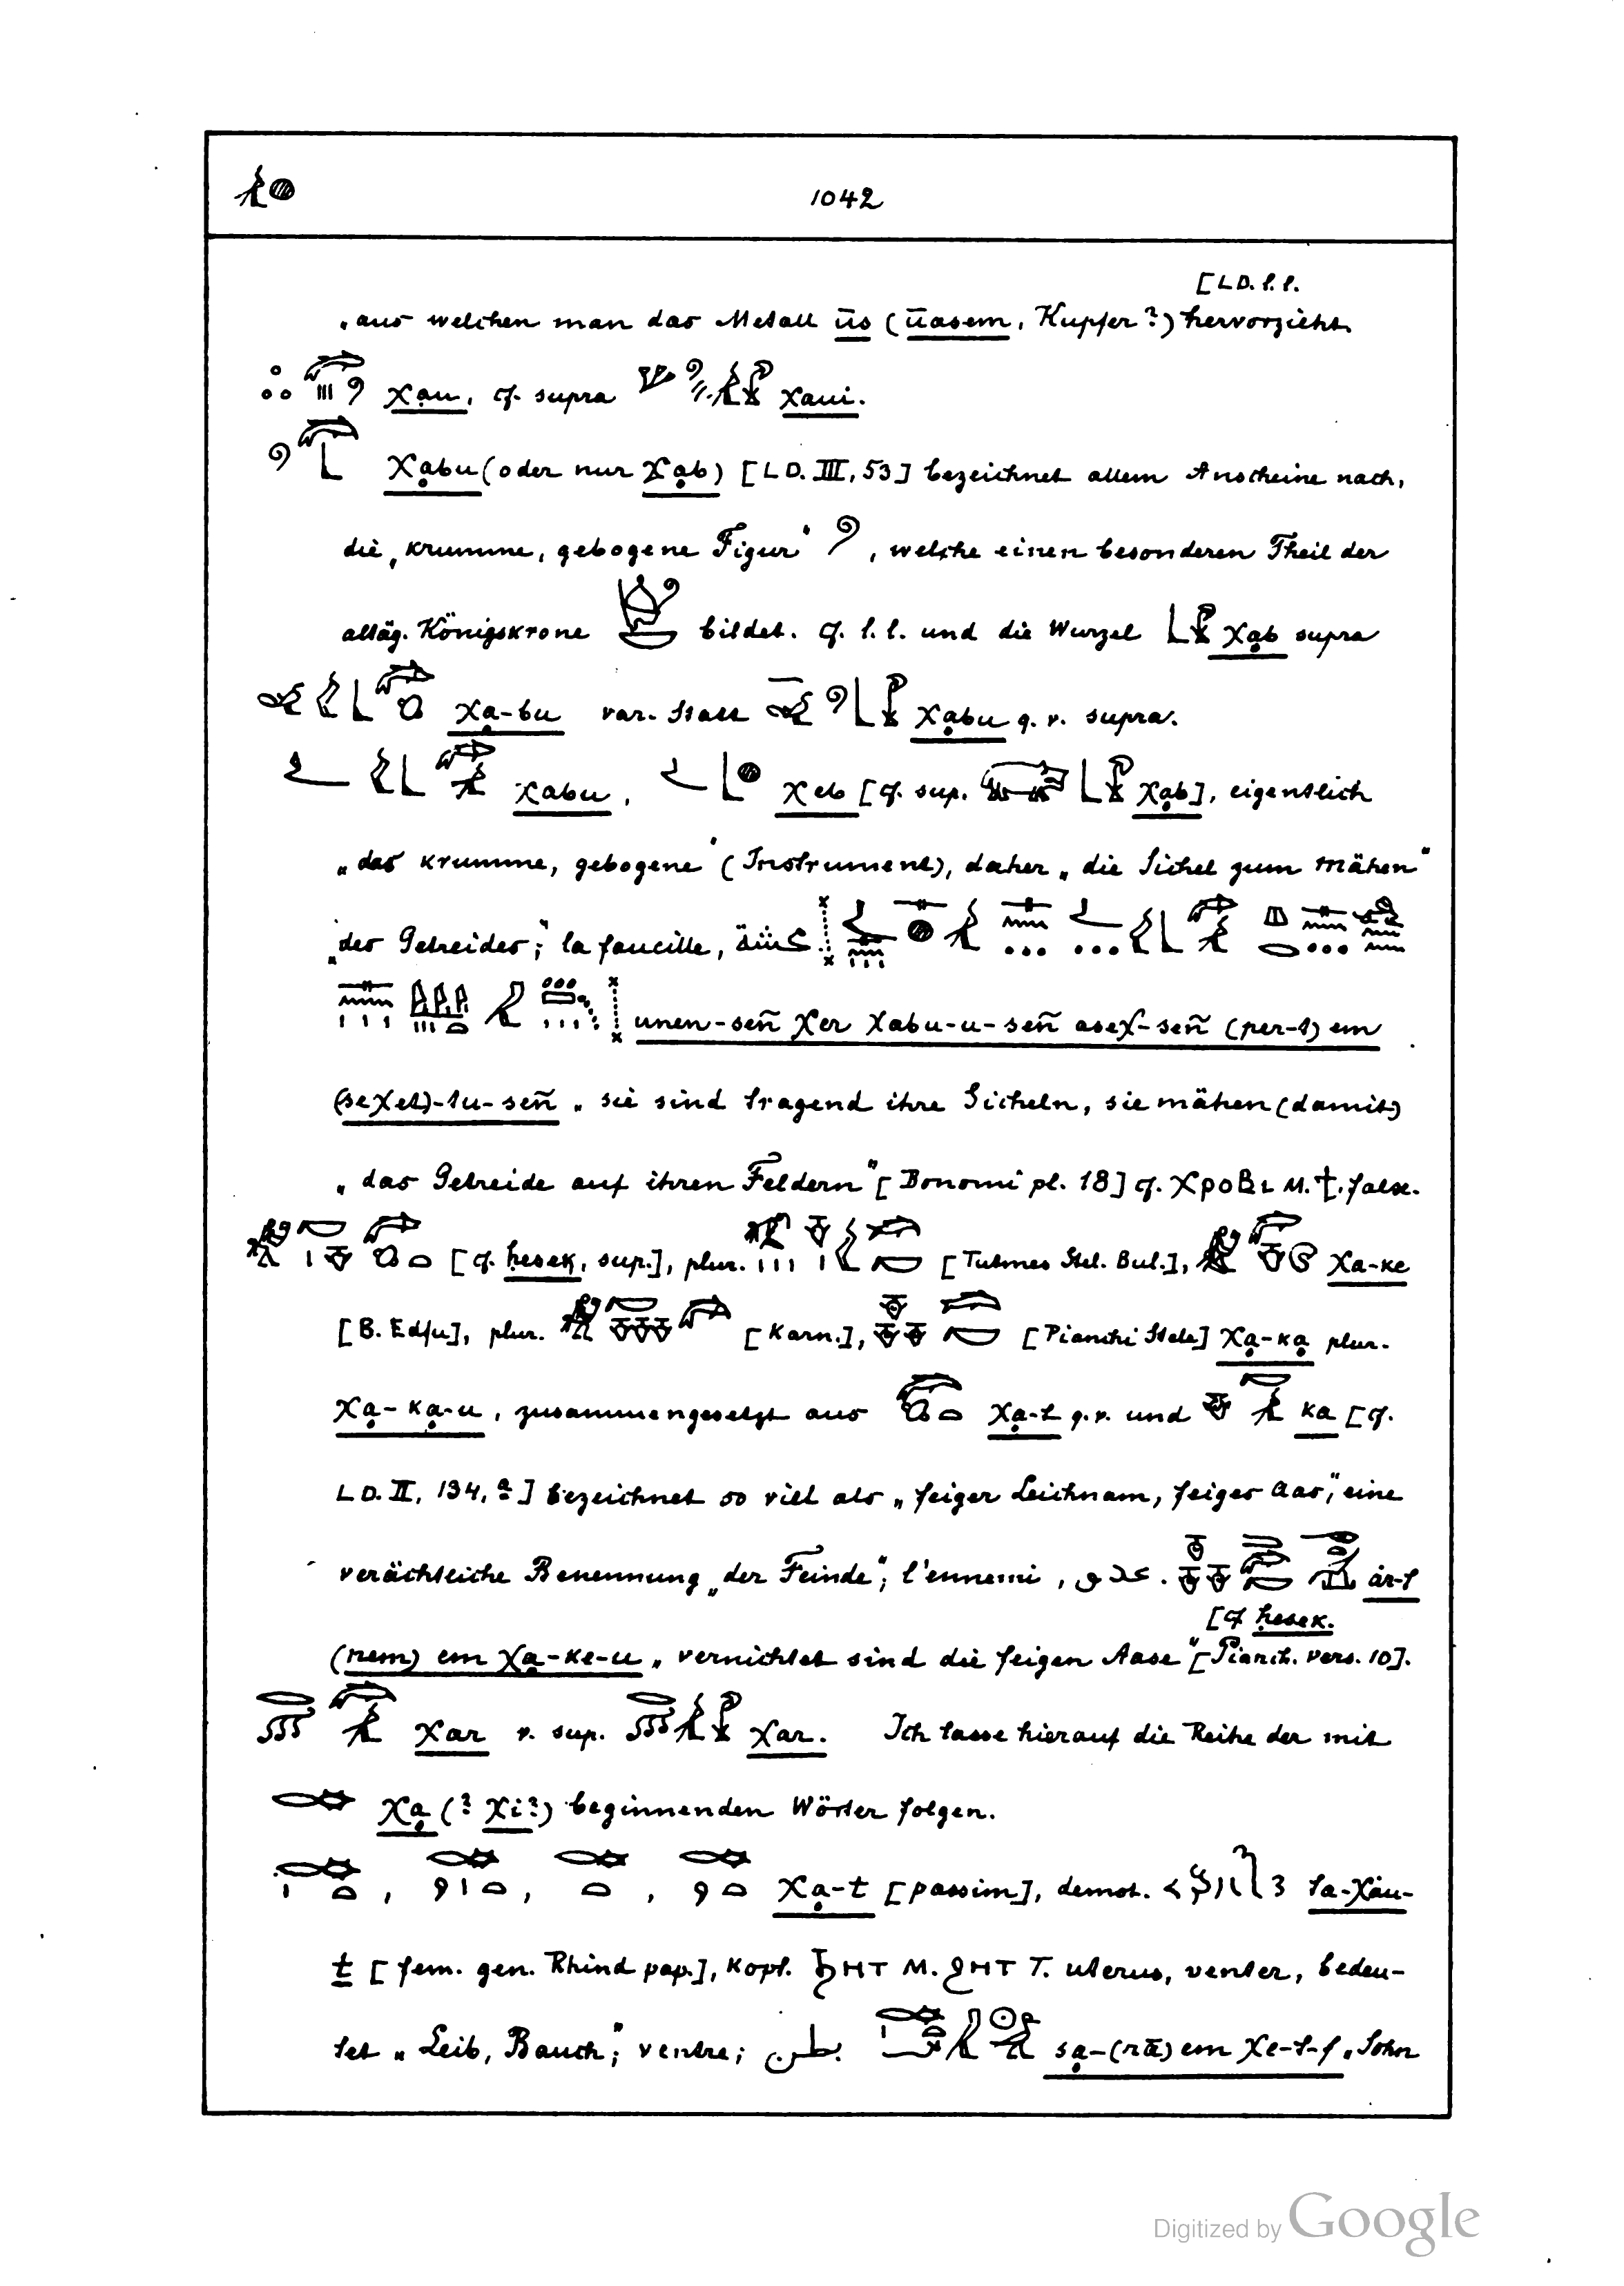 1042
[LD. l. l.
„aus welchen man das Metall ūs (ūasem, Kupfer?) hervorzieht.
χạu, cf. supra χaui.
χạbu (oder nur χạb) [LD. III, 53] bezeichnet allem Anscheine nach,
die „krumme, gebogene Figur“ , welche einen besonderen Theil der
altäg. Königskrone bildet. cf. l. l. und die Wurzel χạb supra
χạ-bu var. statt χạbu q. v. supra.
χabu, χeb [cf. sup. χạb], eigentlich
„das krumme, gebogene“ (Instrument), daher „die Sichel zum Mähen“
„des Getreides;“ la faucille,
unen-señ χer χabu-u-señ aseχ-señ (per-t) em
(seχet)-tu-señ „sie sind tragend ihre Sicheln, sie mähen (damit)
„das Getreide auf ihren Feldern“ [Bonomi pl. 18] cf. ⲭⲣⲟⲃⲓ M. †. falx.
[cf. ḥeseḳ, sup.], plur. [Tutmes Stel. Bul.], χa-ke
[B. Edfu], plur. [Karn.], [Pianchi Stele] χạ-kạ plur.
χạ-kạ-u, zusammengesetzt aus χạ-t q. v. und ka [cf.
LD. II, 134, a] bezeichnet so viel als „feiger Leichnam, feiges Aas,“ eine
verächtliche Benennung „der Feinde“; l'ennemi, عدو. ȧr-t
[cf ḥesek.
(nem) em χạ-ke-u „vernichtet sind die feigen Aase“ [Pianch. vers. 10].
χar v. sup. χar. Ich lasse hierauf die Reihe der mit
χạ (? χi?) beginnenden Wörter folgen.
, , , χạ-t [passim], demot. ta-χȧu-
t [fem. gen. Rhind pap.], Kopt. ϧⲏⲧ M. ϩⲏⲧ T. uterus, venter, bedeu-
tet „Leib, Bauch;“ ventre; بطن. sạ-(rā) em χe-t-f „Sohn
Digitized by Google